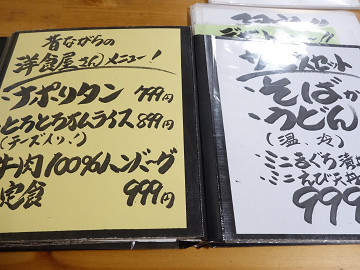 昔ながらの
洋食屋さんメニュー!
ナポリタン 799円
とろとろオムライス 899円
(チーズ入り!)
牛肉100%ハンバーグ
定食 999円
サービスセット
そばか
うどん
(温、冷)
・ミニまぐろ漬
・ミニえび天丼
999